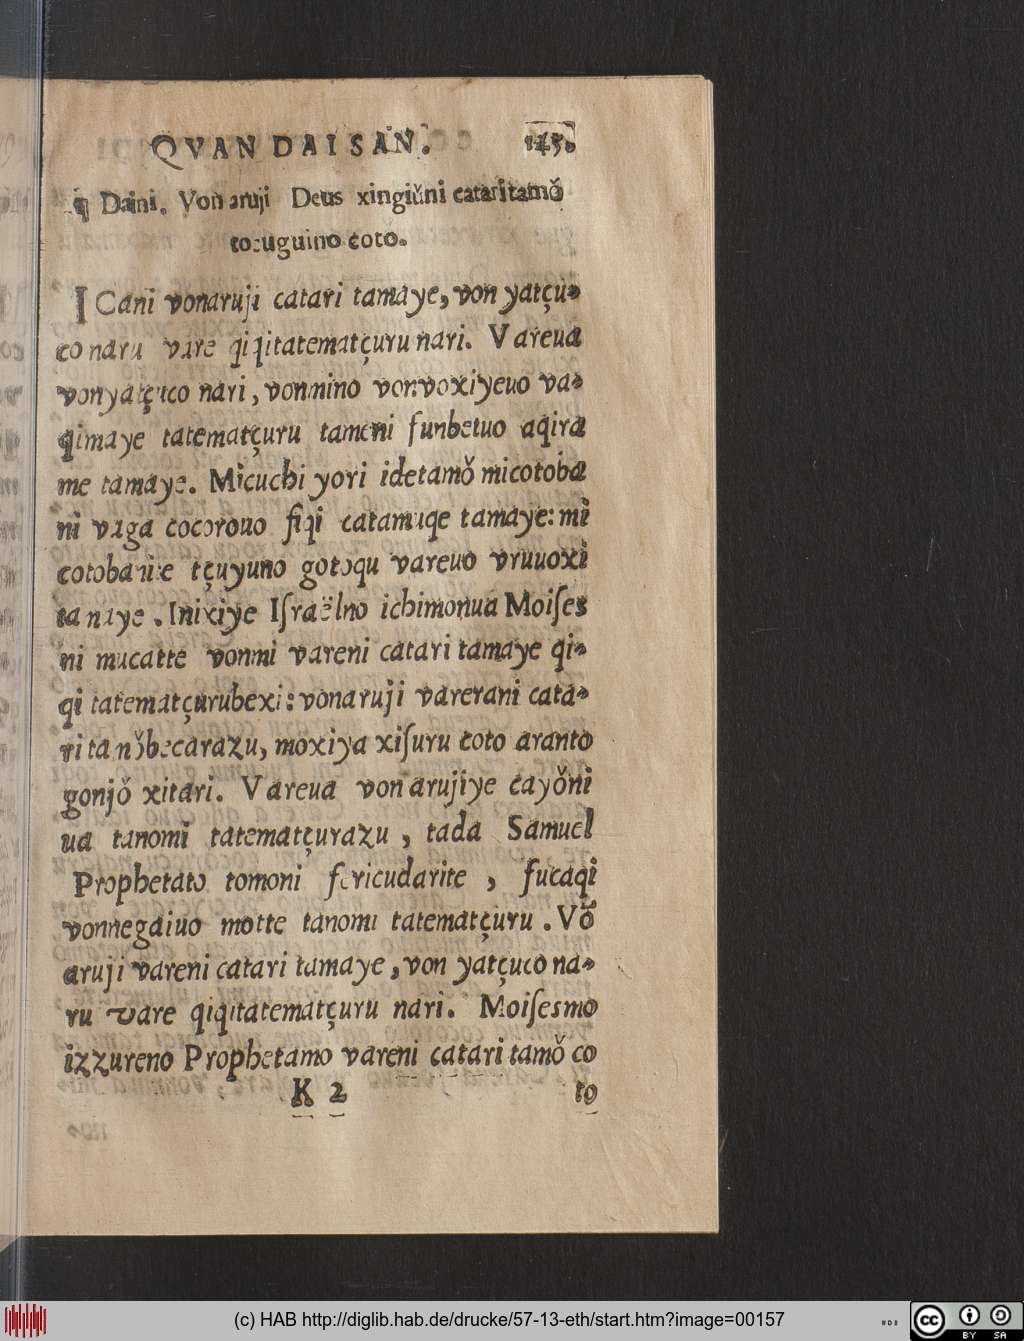 QVAN DAI SAN. 145.
¶ Daini. Von aruji Deus xingiǔni cataritamǒ
tocuguino coto.
ICani vonaruji catari tamaye, von yatçu-
co naru vare qiqitatematçuru nari. Vareua
vonyatçuco nari, vonmino vonvoxiyeuo va-
qimaye tatematçuru tameni funbetuo aqira
me tamaye. Micuchi yori idetamǒ micotoba
ni vaga cocorouo fiqi catamuqe tamaye: mi
cotobauoe tçuyuno gotoqu vareuo vruuoxi
tamaye. Inixiye Iſraëlno ichimonua Moiſes
ni mucatte vonmi vareni catari tamaye qi-
qi tatematçurubexi: vonaruji varerani cata-
ri tanǒbecarazu, moxiya xiſuru coto aranto
gonjǒ xitari. Vareua vonarujiye cayǒni
ua tanomi tatematçurazu, tada Samuel
Prophetato tomoni fericudarite, fucaqi
vonnegaiuo motte tanomi tatematçuru. Vǒ
aruji vareni catari tamaye, von yatçuco na-
ru vare qiqitatematçuru nari. Moiſesmo
izzureno Prophetamo vareni catari tamǒ co
K 2 to
(c) HAB http://diglib.hab.de/drucke/57-13-eth/start.htm?image=00157
cc BY SA